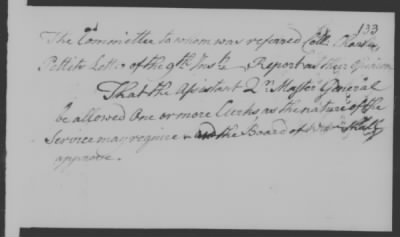 133
The Committee to whom was refered Coll. Charles
Pettits Letter of the 9th Inst. Report as their Opinion
That the Assistant Qr. Master General
be allowed One or more Clerks as the nature of the
Service may require & the Board of War shall
approve.